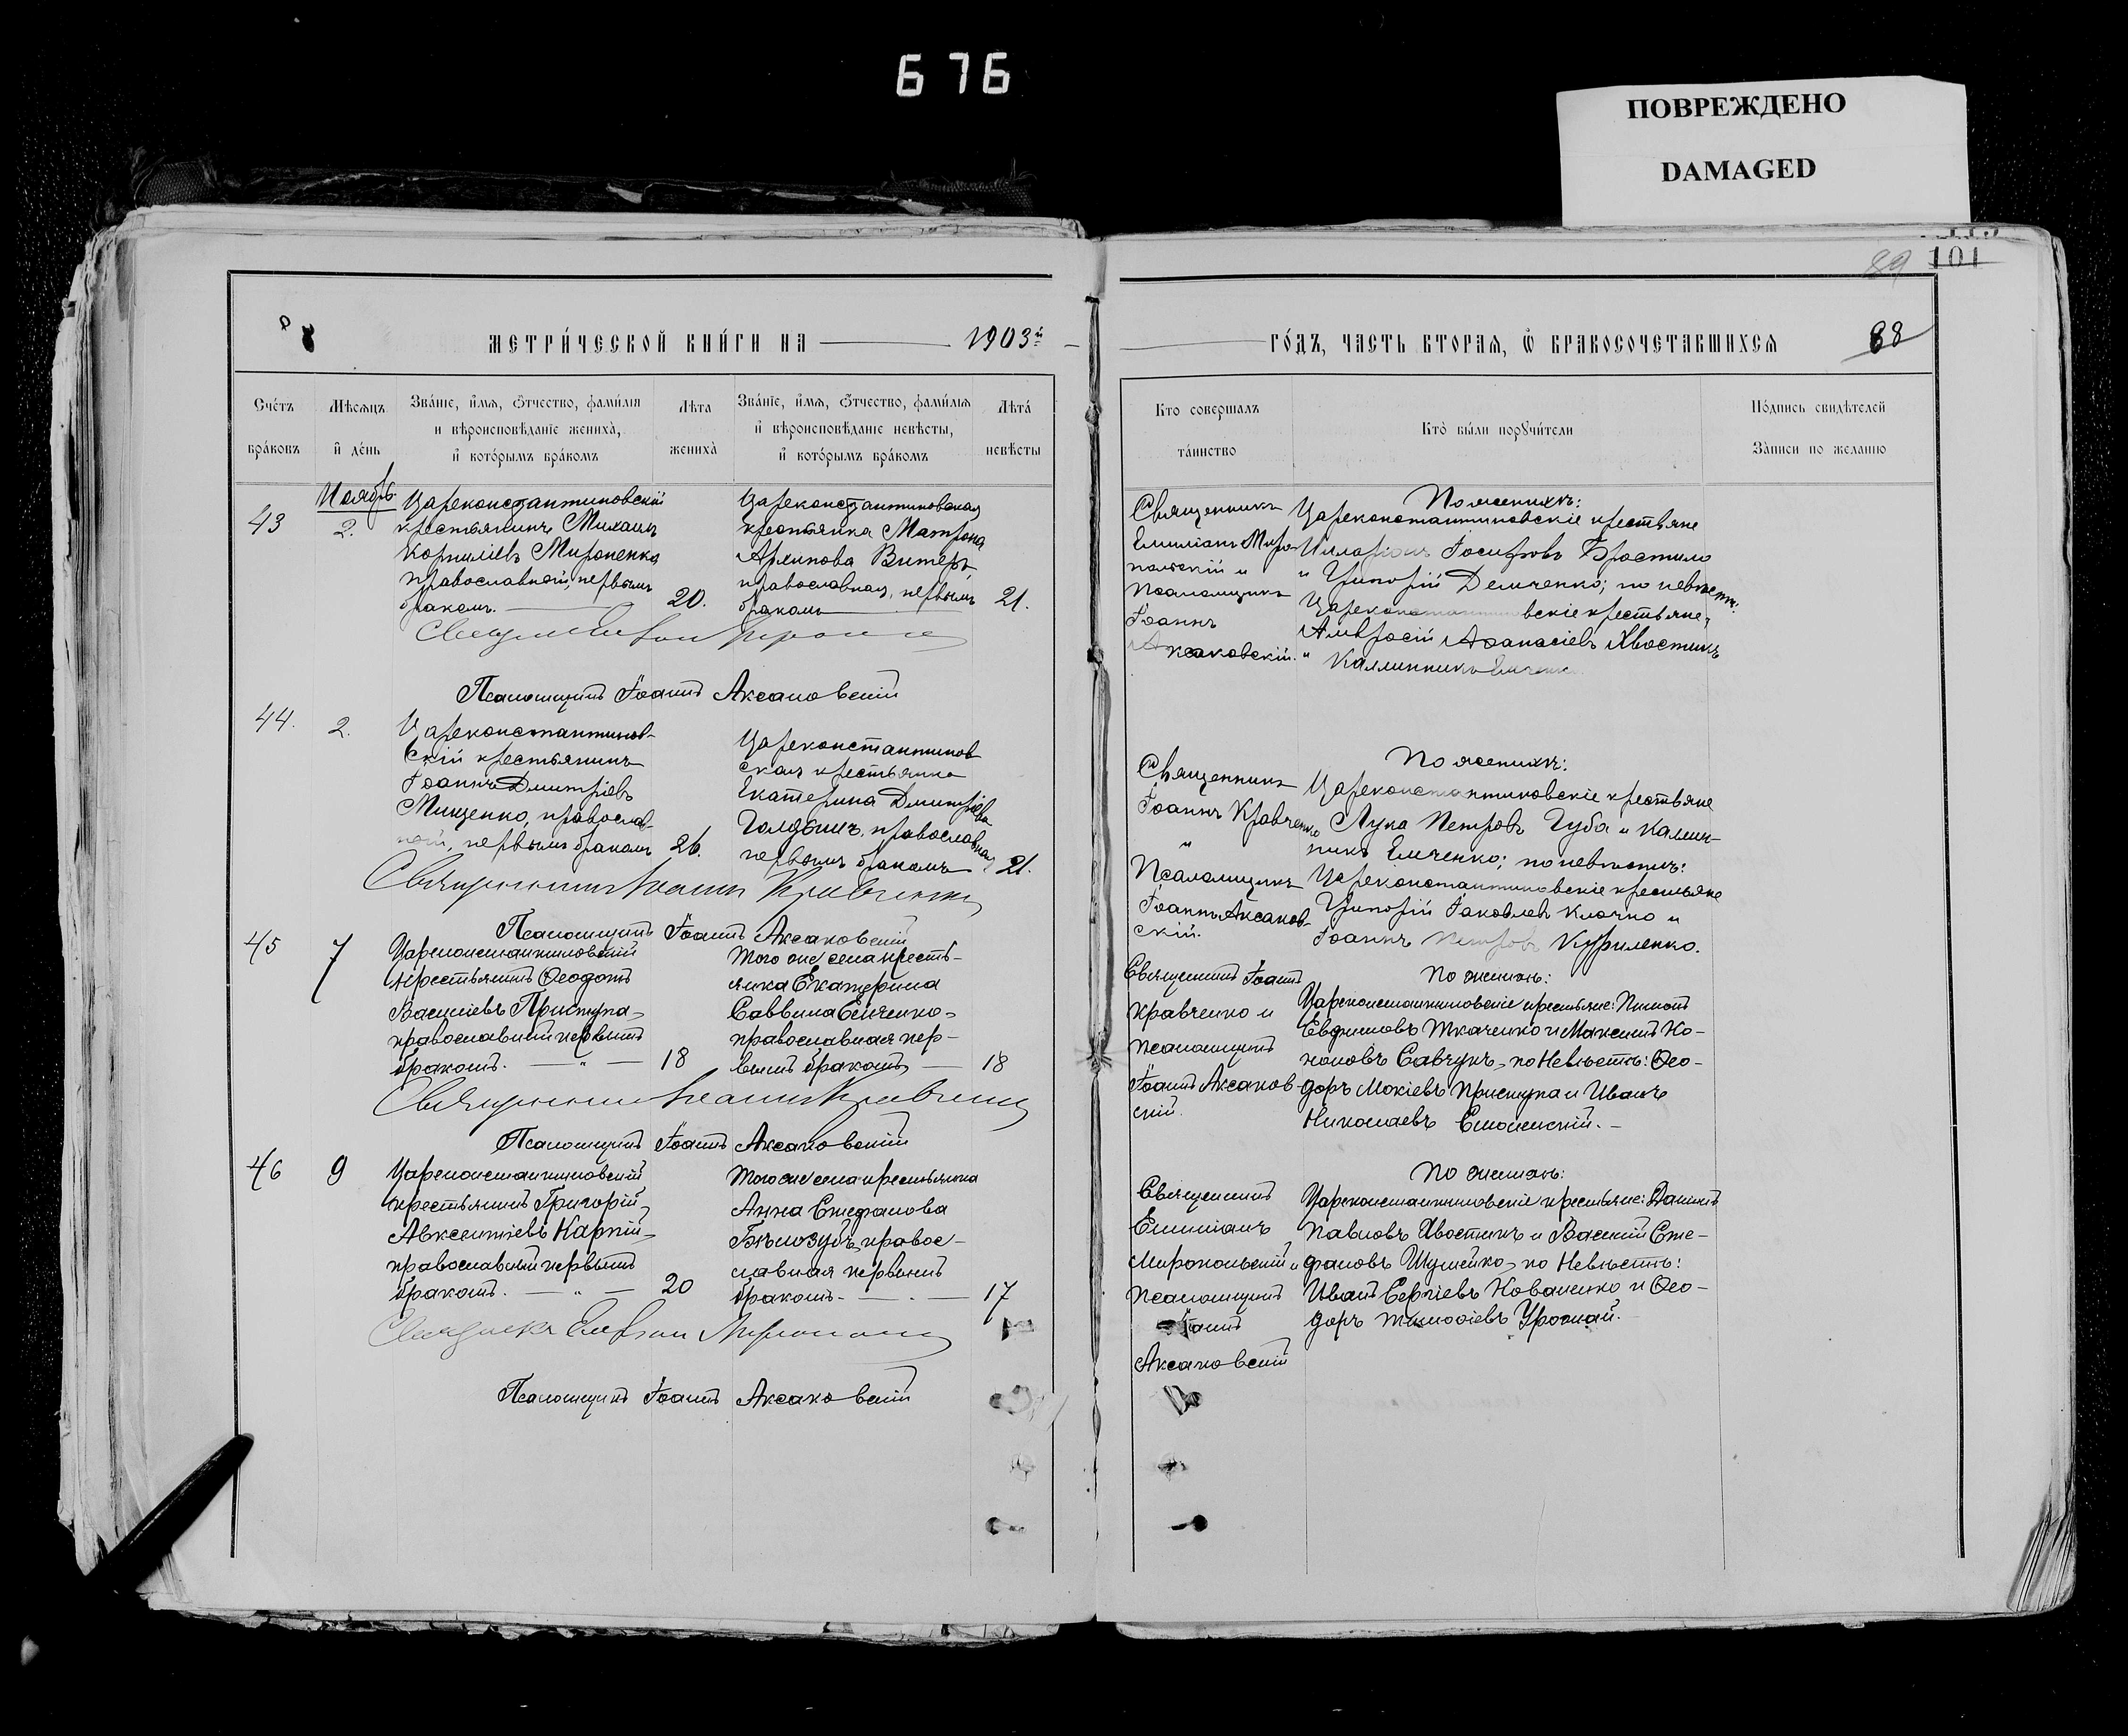 676
ПОВРЕЖДЕНО
DAMAGED
101
89
МЕТРИ́ЧЕСКОЙ КНИ́ГИ НА 1903й
ГО́ДЪ, ЧАСТЬ ВТОРАЯ, Ѿ БРАКОСОЧЕТАВШИХСЯ
88
Сче́тъ бра́ковъ
Мѣсяцъ и̂ де́нь
Зва́нїе, и̂мя, ѻ҆́тчество, фами́лїя
и вѣроисповѣ́данїе жениха̀,
и̂ кото́рымъ бра́комъ
Лѣта жениха̀
Зва́нїе, и̂мя, ѻ҆́тчество, фами́лїя
и̂ вѣроисповѣ́данїе невѣсты,
и̂ кото́рымъ бра́комъ
Лѣта́ невѣсты
Кто совершалъ та́инство
Кто̀ бы́ли порꙋчи́тели
По́дпись свидѣ́телей
За́писи по желанію
Ноябрь
43
2.
Цареконстантиновскій
крестьянинъ Михаилъ
Корнилiевъ Мироненко
православный, первымъ
бракомъ.
20.
Цареконстантиновская
крестьянка Матрона
Архипова Витеръ,
православная, первымъ
бракомъ
21.
Священникъ
Емиліанъ Миро
польскій и
Псаломщикъ
Іоаннъ
Аксаковскій.
По женихѣ:
Цареконстантиновскіе крестьяне
Илларіонъ Іосифовъ
и Григорій Демченко; по невѣстѣ:
Цареконстантиновскіе крестьяне,
Амвросій Аѳанасіевъ Хвостикъ
и Каллиникъ
Псаломщикъ Іоаннъ Аксаковскій
44.
2.
Цареконстантинов-
скій крестьянинъ
Іоаннъ Дмитріевъ
Мищенко, православ-
ный, первымъ бракомъ
26.
Цареконстантинов
ская крестьянка
Екатерина Дмитріева
православная
первымъ бракомъ
21.
Священникъ
Іоаннъ Кравченко
и
Псаломщикъ
Іоаннъ Аксаков-
скій.
По женихѣ:
Цареконстантиновскіе крестьяне
Лука Петровъ Губа и Калин-
никъ Емченко; по невѣстѣ:
Цареконстантиновскіе крестьяне
Григорій Іаковлевъ Клочко и
Іоаннъ Петровъ Куриленко.
Священникъ Іоаннъ Кравченко
Псаломщикъ Іоаннъ Аксаковскій
45
7
Цареконстантиновскій
крестьянинъ Ѳеодотъ
Василіевъ Приступа,
православный первымъ
бракомъ. — " —
18
Того же села кресть-
янка Екатерина
Саввина Емченко,
православная пер-
вымъ бракомъ, —
18
Священникъ Іоаннъ
Кравченко и
псаломщикъ
Іоаннъ Аксаков-
скій.
По женихѣ:
Цареконстантиновскіе крестьяне: Пименъ
Евфимовъ Ткаченко и Максимъ Ко-
ноновъ Савчукъ, по Невѣстѣ: Ѳео-
доръ Мокіевъ Приступа и Иванъ
Николаевъ Смоленскій. –
Священникъ Іоаннъ Кравченко
Псаломщикъ Іоаннъ Аксаковскій
46
9
Цареконстантиновскій
крестьянинъ Григорій
Авксентіевъ Карпій,
православный первымъ
бракомъ. — " —
20
Того же села крестьянка
Анна Стефанова
Бѣлозубъ, правос-
лавная первымъ
бракомъ. —
17
Священникъ
Емиліанъ
Миропольскій и
псаломщикъ
Іоаннъ
Аксаковскій
По женихѣ:
Цареконстантиновскіе крестьяне: Даніилъ
Павловъ Хвостикъ и Василій Сте-
фановъ Шулейко, по Невѣстѣ:
Иванъ Сергіевъ Коваленко и Ѳео-
доръ Тимоѳіевъ Урожай.
Псаломщикъ Іоаннъ Аксаковскій